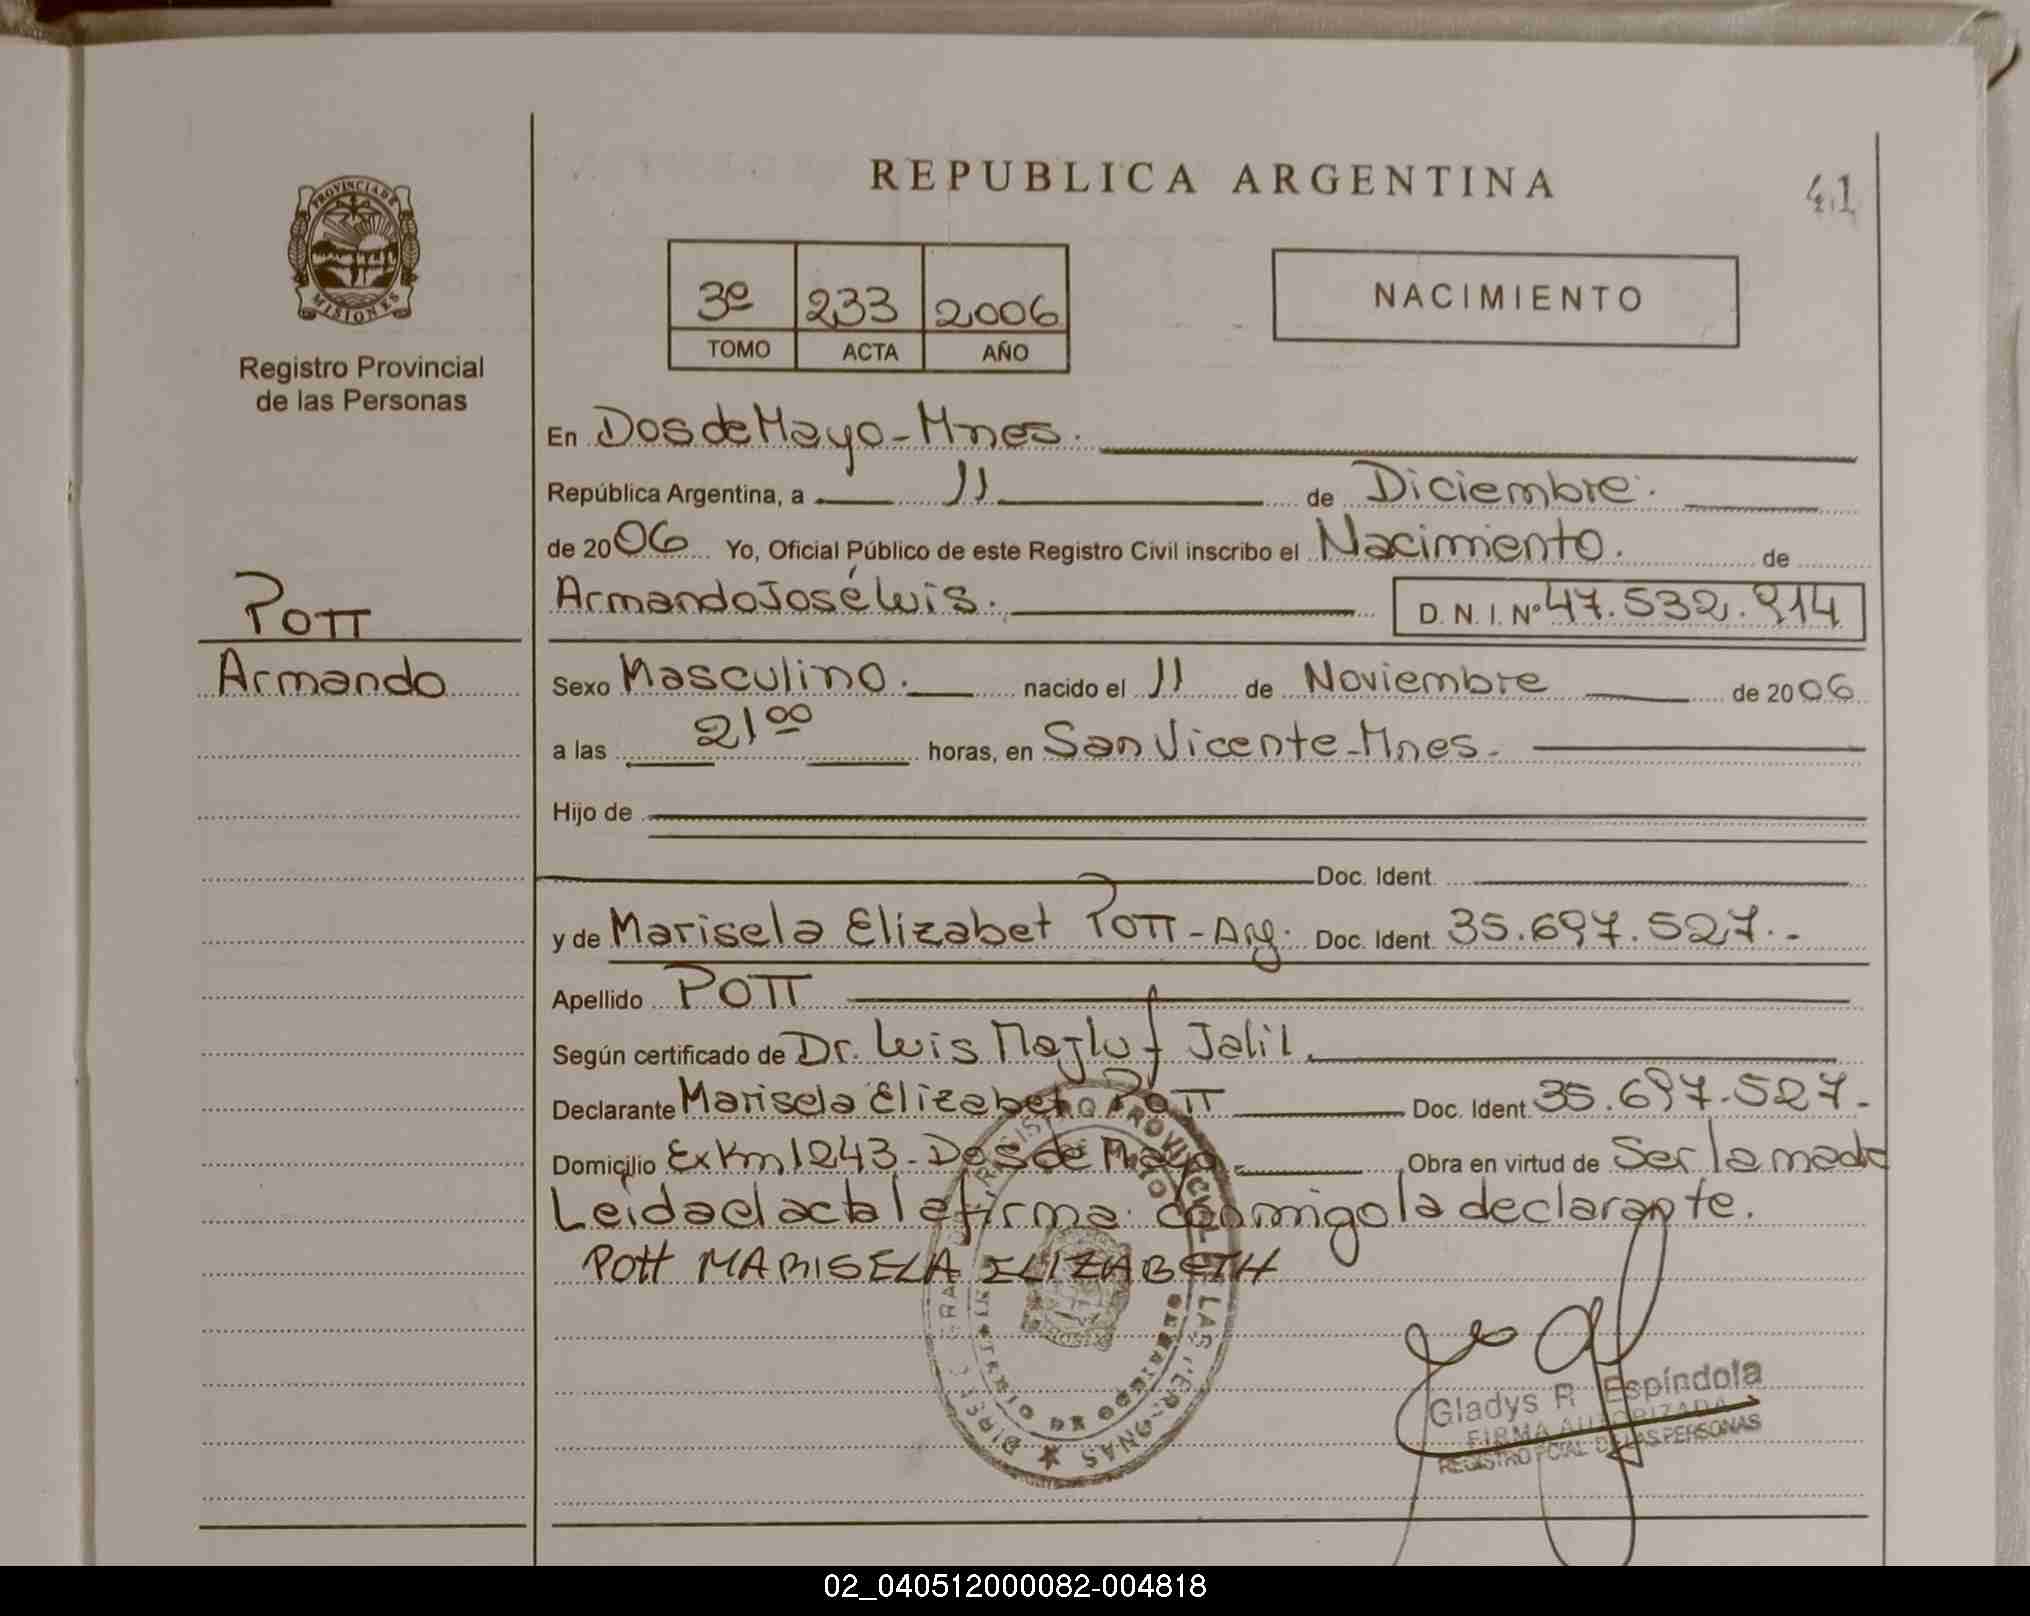 REPUBLICA ARGENTINA
41
PROVINCIA DE MISIONES
Registro Provincial
de las Personas
3º 233 2006
TOMO ACTA AÑO
NACIMIENTO
En Dos de Mayo - Mnes.
República Argentina, a 11 de Diciembre.
de 2006 Yo, Oficial Público de este Registro Civil inscribo el Nacimiento. de
Armando José Luis. D. N. I. Nº 47.532.914
Pott
Armando
Sexo Masculino. nacido el 11 de Noviembre de 2006
a las 21 00 horas, en San Vicente - Mnes.
Hijo de
Doc. Ident.
y de Marisela Elizabet Pott - Arg. Doc. Ident. 35.697.527.-
Apellido Pott
Según certificado de Dr. Luis Jalil.
Declarante Marisela Elizabet Pott Doc. Ident. 35.697.527.-
Domicilio Ex Km 1243 - Dos de Mayo. Obra en virtud de Ser la madre
Leida el acta la firma conmigo la declarante.
Pott MARISELA ELIZABETH
Gladys R. Espíndola
FIRMA AUTORIZADA
REGISTRO PCIAL DE LAS PERSONAS
02_040512000082-004818